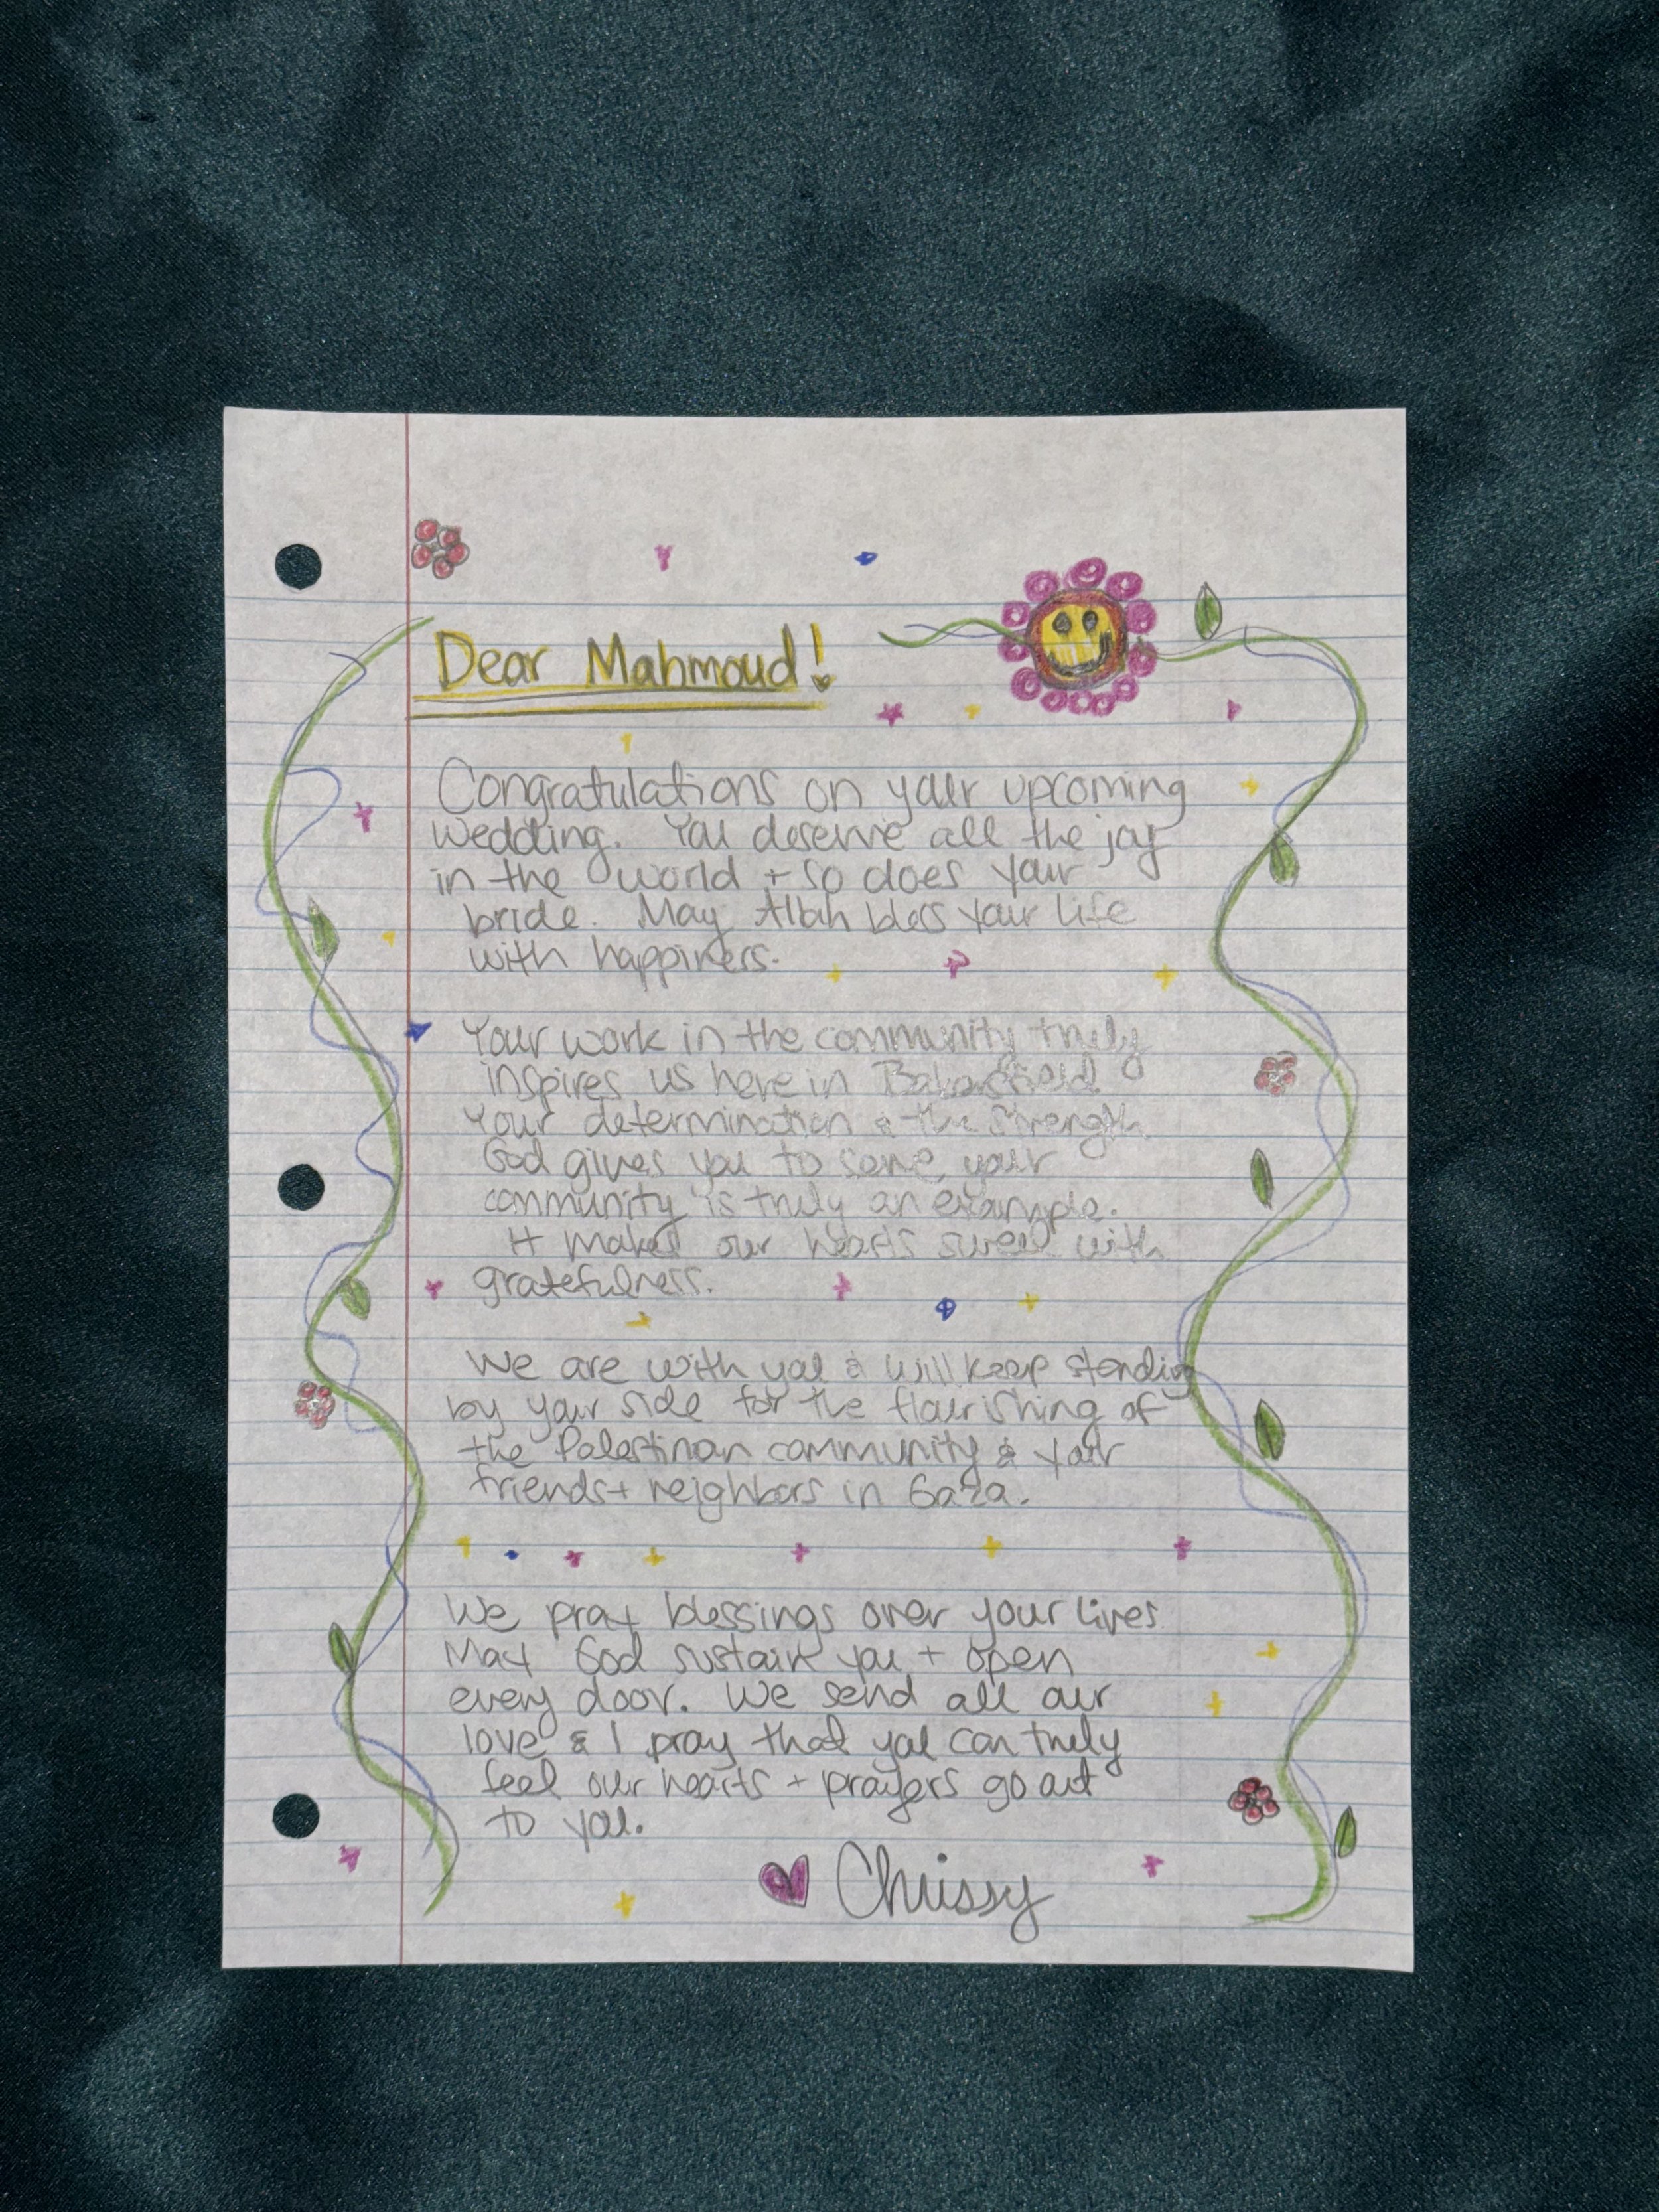 Dear Mahmoud!
Congratulations on your upcoming
wedding. You deserve all the joy
in the world + so does your
bride. May Allah bless your life
with happiness.
Your work in the community truly
inspires us here in Bakersfield.
Your determination & the strength
God gives you to serve your
community is truly an example.
It makes our hearts swell with
gratefulness.
We are with you & will keep standing
by your side for the flourishing of
the Palestinian community & your
friends + neighbors in Gaza.
We pray blessings over your lives.
May God sustain you + open
every door. We send all our
love & I pray that you can truly
feel our hearts + prayers go out
to you.
Chrissy